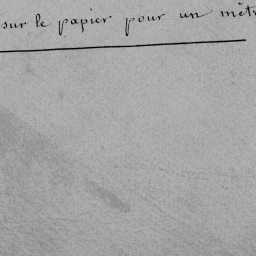 sur le papier pour un mètr